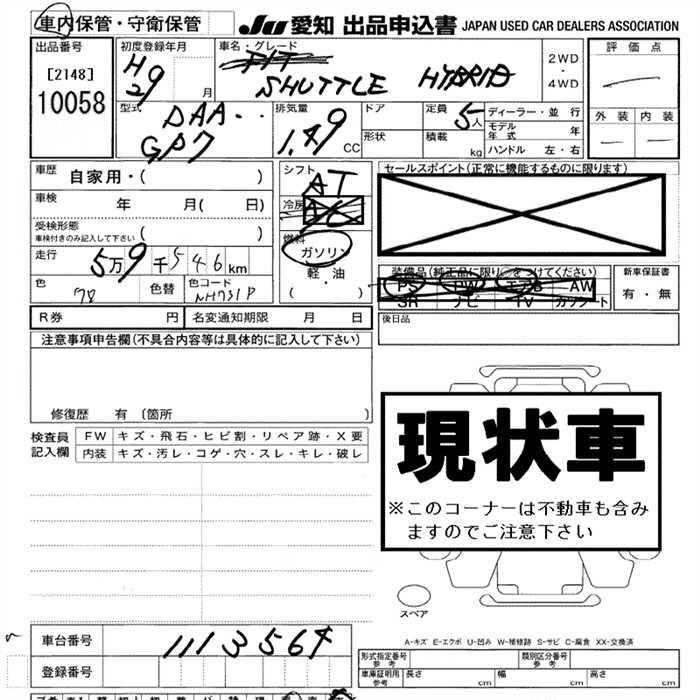 車内保管・守衛保管
JU 愛知 出品申込書 JAPAN USED CAR DEALERS ASSOCIATION
出品番号
[2148]
10058
初度登録年月
H29 月
車名・グレード
FIT
SHUTTLE HYBRID
2WD
・
4WD
評価点
外装 内装
型式
DAA--
GP7
排気量
1.49 CC
ドア
形状
定員
5人
積載 kg
ディーラー・並行
モデル年式 年
ハンドル 左・右
車歴
自家用・( )
車検 年 月( 日)
受検形態
車検付きのみ記入して下さい ( )
走行
5万9千546km
色
78
色替
色コード
NH731P
シフト
AT
冷房
AC
燃料
ガソリン
軽・油
( )
セールスポイント(正常に機能するものに限ります)
装備品(純正品に限り○をつけてください)
PS PW エアB AW
SR ナビ TV カセット
新車保証書
有・無
後日品
R券 円 名変通知期限 月 日
注意事項申告欄(不具合内容等は具体的に記入して下さい)
修復歴 有 〔箇所 〕
検査員
記入欄
FW キズ・飛石・ヒビ割・リペア跡・X要
内装 キズ・汚レ・コゲ・穴・スレ・キレ・破レ
現状車
※このコーナーは不動車も含み
ますのでご注意下さい
スペア
A-キズ E-エクボ U-凹み W-補修跡 S-サビ C-腐食 XX-交換済
車台番号 1113564
登録番号
型式指定番号
参考
類別区分番号
参考
車庫証明用
参考
長さ cm
幅 cm
高さ cm